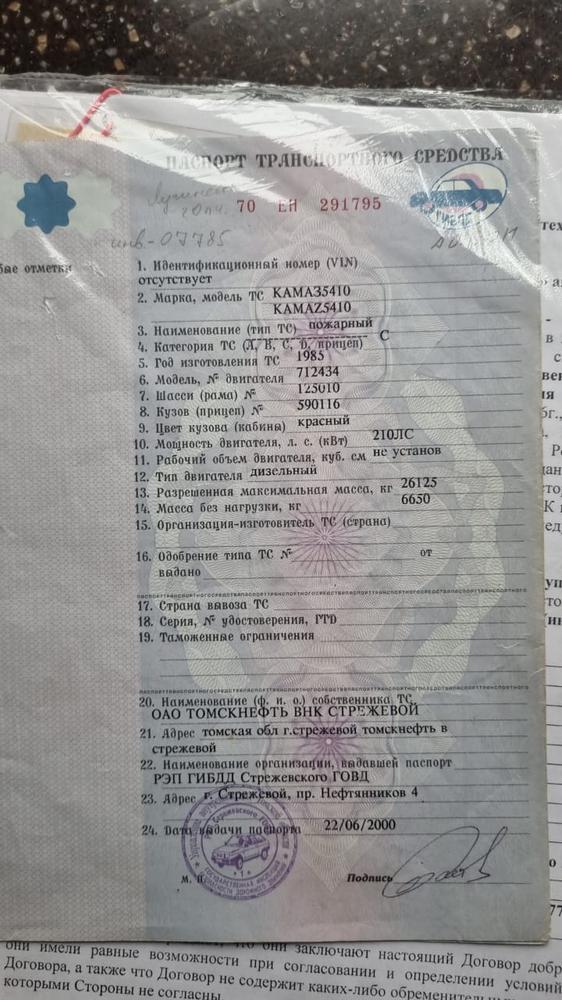 ПАСПОРТ ТРАНСПОРТНОГО СРЕДСТВА
70 ЕН 291795
инв-07785
бые отметки
1. Идентификационный номер (VIN)
отсутствует
2. Марка, модель ТС КАМАЗ5410
KAMAZ5410
3. Наименование (тип ТС) пожарный
4. Категория ТС (А, В, С, D, прицеп) С
5. Год изготовления ТС 1985
6. Модель, № двигателя 712434
7. Шасси (рама) № 125010
8. Кузов (прицеп) № 590116
9. Цвет кузова (кабины) красный
10. Мощность двигателя, л. с. (кВт) 210ЛС
11. Рабочий объем двигателя, куб. см не установ
12. Тип двигателя дизельный
13. Разрешенная максимальная масса, кг 26125
14. Масса без нагрузки, кг 6650
15. Организация-изготовитель ТС (страна)
16. Одобрение типа ТС № от
выдано
17. Страна вывоза ТС
18. Серия, № удостоверения, ГТД
19. Таможенные ограничения
20. Наименование (ф. и. о.) собственника ТС
ОАО ТОМСКНЕФТЬ ВНК СТРЕЖЕВОЙ
21. Адрес томская обл г.стрежевой томскнефть в
стрежевой
22. Наименование организации, выдавшей паспорт
РЭП ГИБДД Стрежевского ГОВД
23. Адрес г. Стрежевой, пр. Нефтянников 4
24. Дата выдачи паспорта 22/06/2000
М. П. Подпись
они заключают настоящий Договор добр
они имели равные возможности при согласовании и определении условий
Договора, а также что Договор не содержит каких-либо обременительн
которыми Стороны не согласны